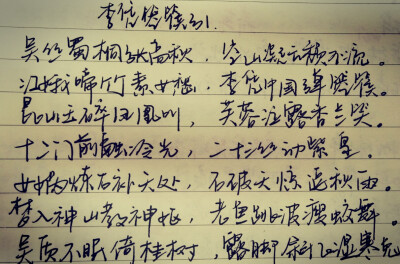 李凭箜篌引.
吴丝蜀桐张高秋，空山凝云颓不流。
江娥啼竹素女愁，李凭中国弹箜篌。
昆山玉碎凤凰叫，芙蓉泣露香兰笑。
十二门前融冷光，二十三丝动紫皇。
女娲炼石补天处，石破天惊逗秋雨。
梦入神山教神妪，老鱼跳波瘦蛟舞。
吴质不眠倚桂树，露脚斜飞湿寒兔